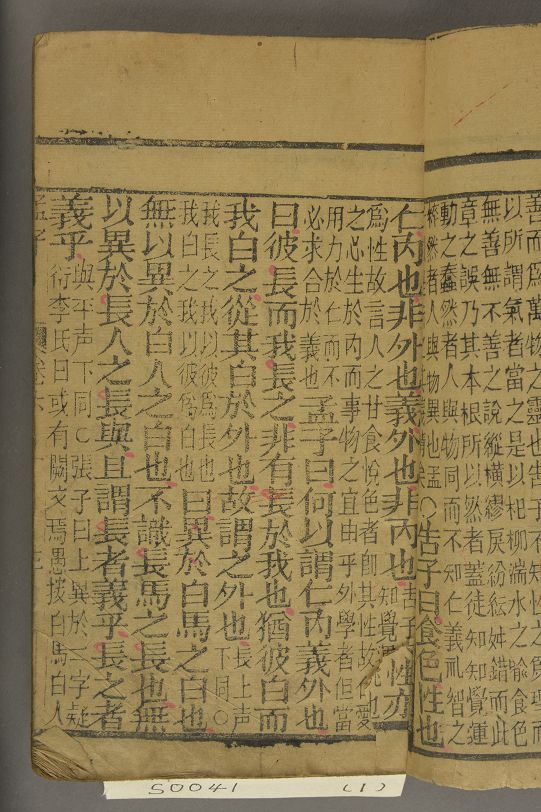 善而爲萬物之靈也告子不知性之爲理而
以所謂氣者當之是以杞柳湍水之喻食色
無善無不善之說縱橫繆戾紛紜舛錯而此
章之誤乃其本根所以然者蓋徒知知覺運
動之蠢然者人與物同而不知仁義禮智之
粹然者人與物異也孟○告子曰食色性也
仁內也非外也義外也非內也
爲性故言人之甘食悅色者卽其性故仁愛
之心生於內而事物之宜由乎外學者但當
用力於仁而不
必求合於義也孟子曰何以謂仁內義外也
曰彼長而我長之非有長於我也猶彼白而
我白之從其白於外也故謂之外也長上声下同○
我長之我以彼爲長也
我白之我以彼爲白也曰異於白馬之白也
無以異於白人之白也不識長馬之長也無
以異於長人之長與且謂長者義乎長之者
義乎與平声下同○張子曰上異於二字疑
衍李氏曰或有闕文焉愚按白馬白人
孟子
S0041 (1)